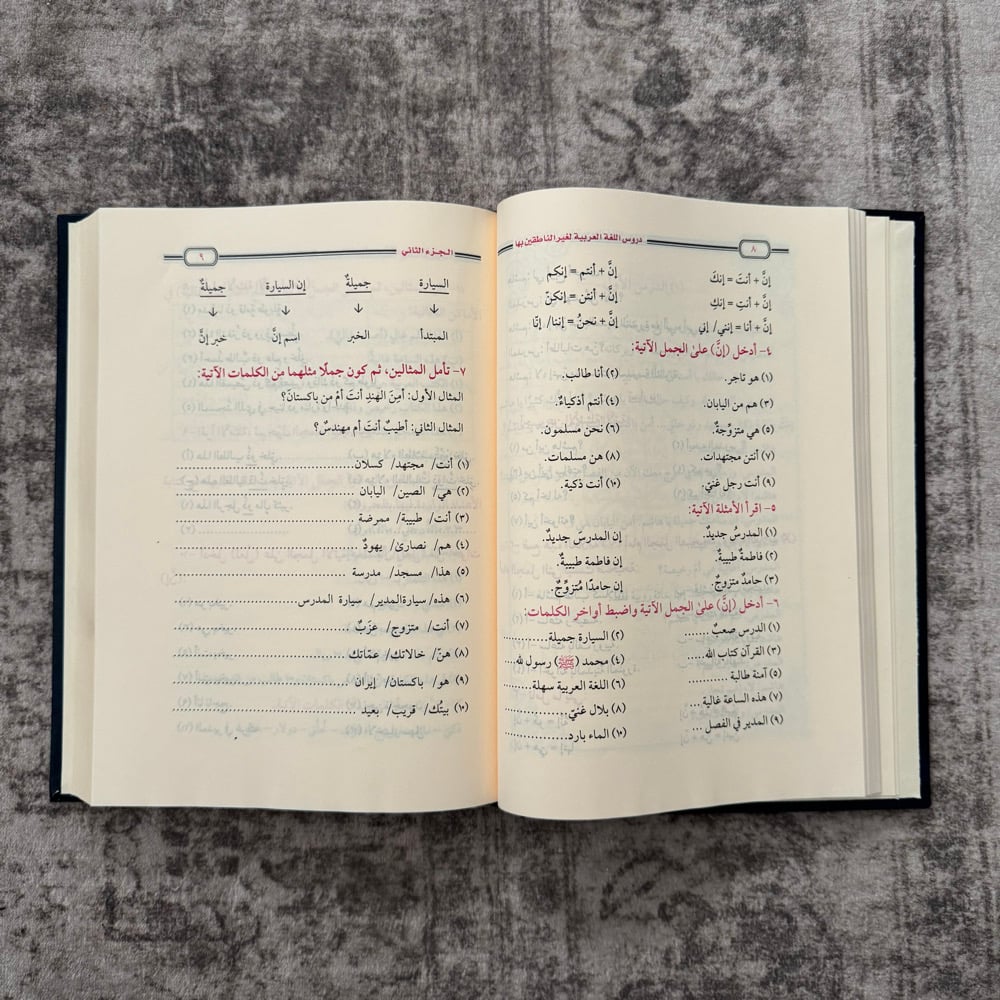 ٨ دروس اللغة العربية لغير الناطقين بها
إنَّ + أنتَ = إنكَ إنَّ + أنتم = إنكم
إنَّ + أنتِ = إنكِ إنَّ + أنتن = إنكنّ
إنَّ + أنا = إنني/ إني إنَّ + نحنُ = إننا/ إنّا
٤- أدخل (إنَّ) علىٰ الجمل الآتية:
(١) هو تاجر. (٢) أنا طالب.
(٣) هم من اليابان. (٤) أنتم أذكياءُ.
(٥) هي متزوِّجةٌ. (٦) نحن مسلمون.
(٧) أنتن مجتهدات. (٨) هن مسلمات.
(٩) أنت رجل غنيّ. (١٠) أنت ذكية.
٥- اقرأ الأمثلة الآتية:
(١) المدرسُ جديدٌ. إن المدرسَ جديدٌ.
(٢) فاطمةُ طبيبةٌ. إن فاطمةَ طبيبةٌ.
(٣) حامدٌ متزوجٌ. إن حامدًا مُتزوِّجٌ.
٦- أدخل (إنَّ) علىٰ الجمل الآتية واضبط أواخر الكلمات:
(١) الدرس صعبٌ ....... (٢) السيارة جميلة...............
(٣) القرآن كتاب الله...... (٤) محمد (ﷺ) رسول لله....
(٥) آمنة طالبة ........... (٦) اللغة العربية سهلة.........
(٧) هذه الساعة غالية ..... (٨) بلال غنيّ...................
(٩) المدير في الفصل ... (١٠) الماء بارد..................
الجزء الثاني ٩
السيارة جميلةٌ إن السيارة جميلةٌ
↓ ↓ ↓ ↓
المبتدأ الخبر اسم إنَّ خبر إنَّ
٧- تأمل المثالين، ثم كون جملًا مثلهما من الكلمات الآتية:
المثال الأول: أمِنَ الهندِ أنتَ أمْ من باكستانَ؟
المثال الثاني: أطبيبٌ أنتَ أم مهندسٌ؟
(١) أنت/ مجتهد/ كسلان..............................
(٢) هيَ/ الصين/ اليابان ..............................
(٣) أنت/ طبيبة/ ممرضة ..............................
(٤) هم/ نصارىٰ/ يهودٌ ..............................
(٥) هذا/ مسجد/ مدرسة ..............................
(٦) هذه/ سيارةالمدير/ سيارة المدرس....................
(٧) أنت/ متزوج/ عزَبٌ ..............................
(٨) هنّ/ خالاتك/ عمّاتك ..............................
(٩) هو/ باكستان/ إيران ..............................
(١٠) بيتُك/ قريب/ بعيد ..............................